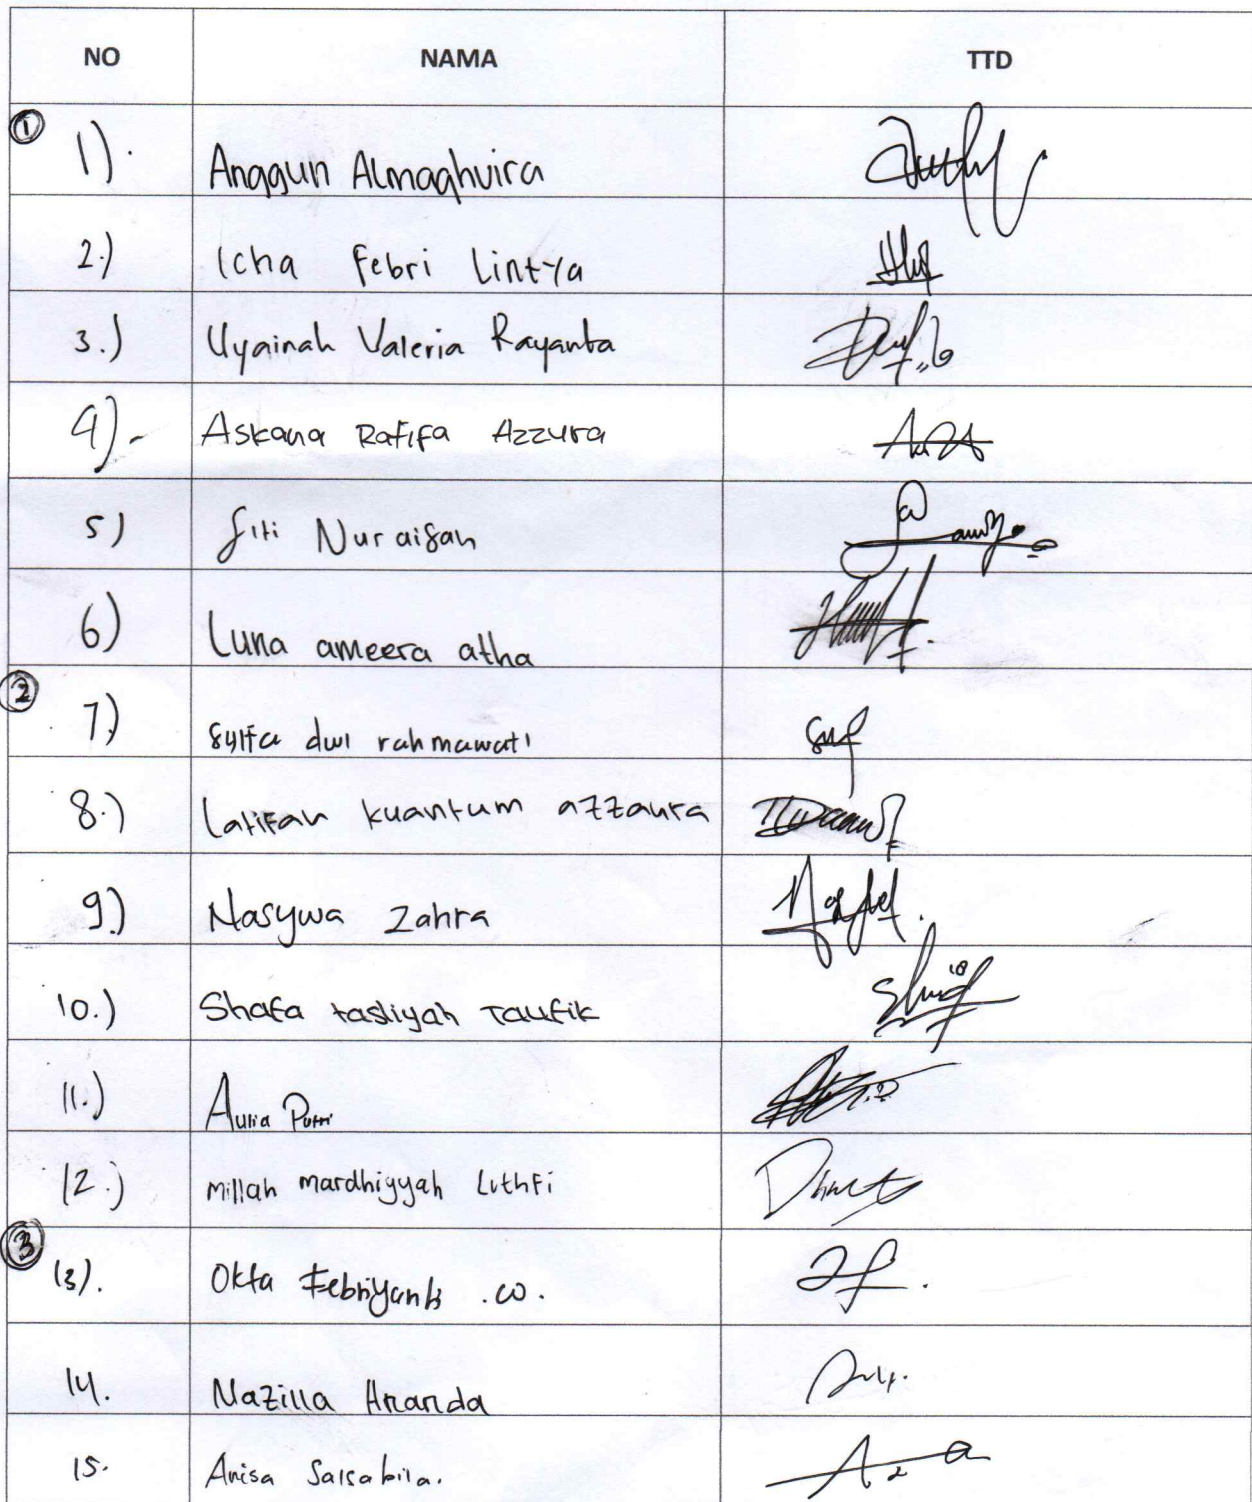 NO NAMA TTD
① 1). Anggun Almaghvira
2.) Icha Febri Lintya
3.) Uyainah Valeria Rayanta
4). Askana Rafifa Azzura
5) Siti Nuraisah
6) Luna ameera atha
② 7.) Sylfa dwi rahmawati
8.) Latifah kuantum azzahra
9.) Nasywa Zahra
10.) Shafa tasliyah Taufik
11.) Aulia Putri
12.) Millah mardhiyyah Luthfi
③ 13). Okta Febriyanti .W.
14. Nazilla Ananda
15. Anisa Salsabila.